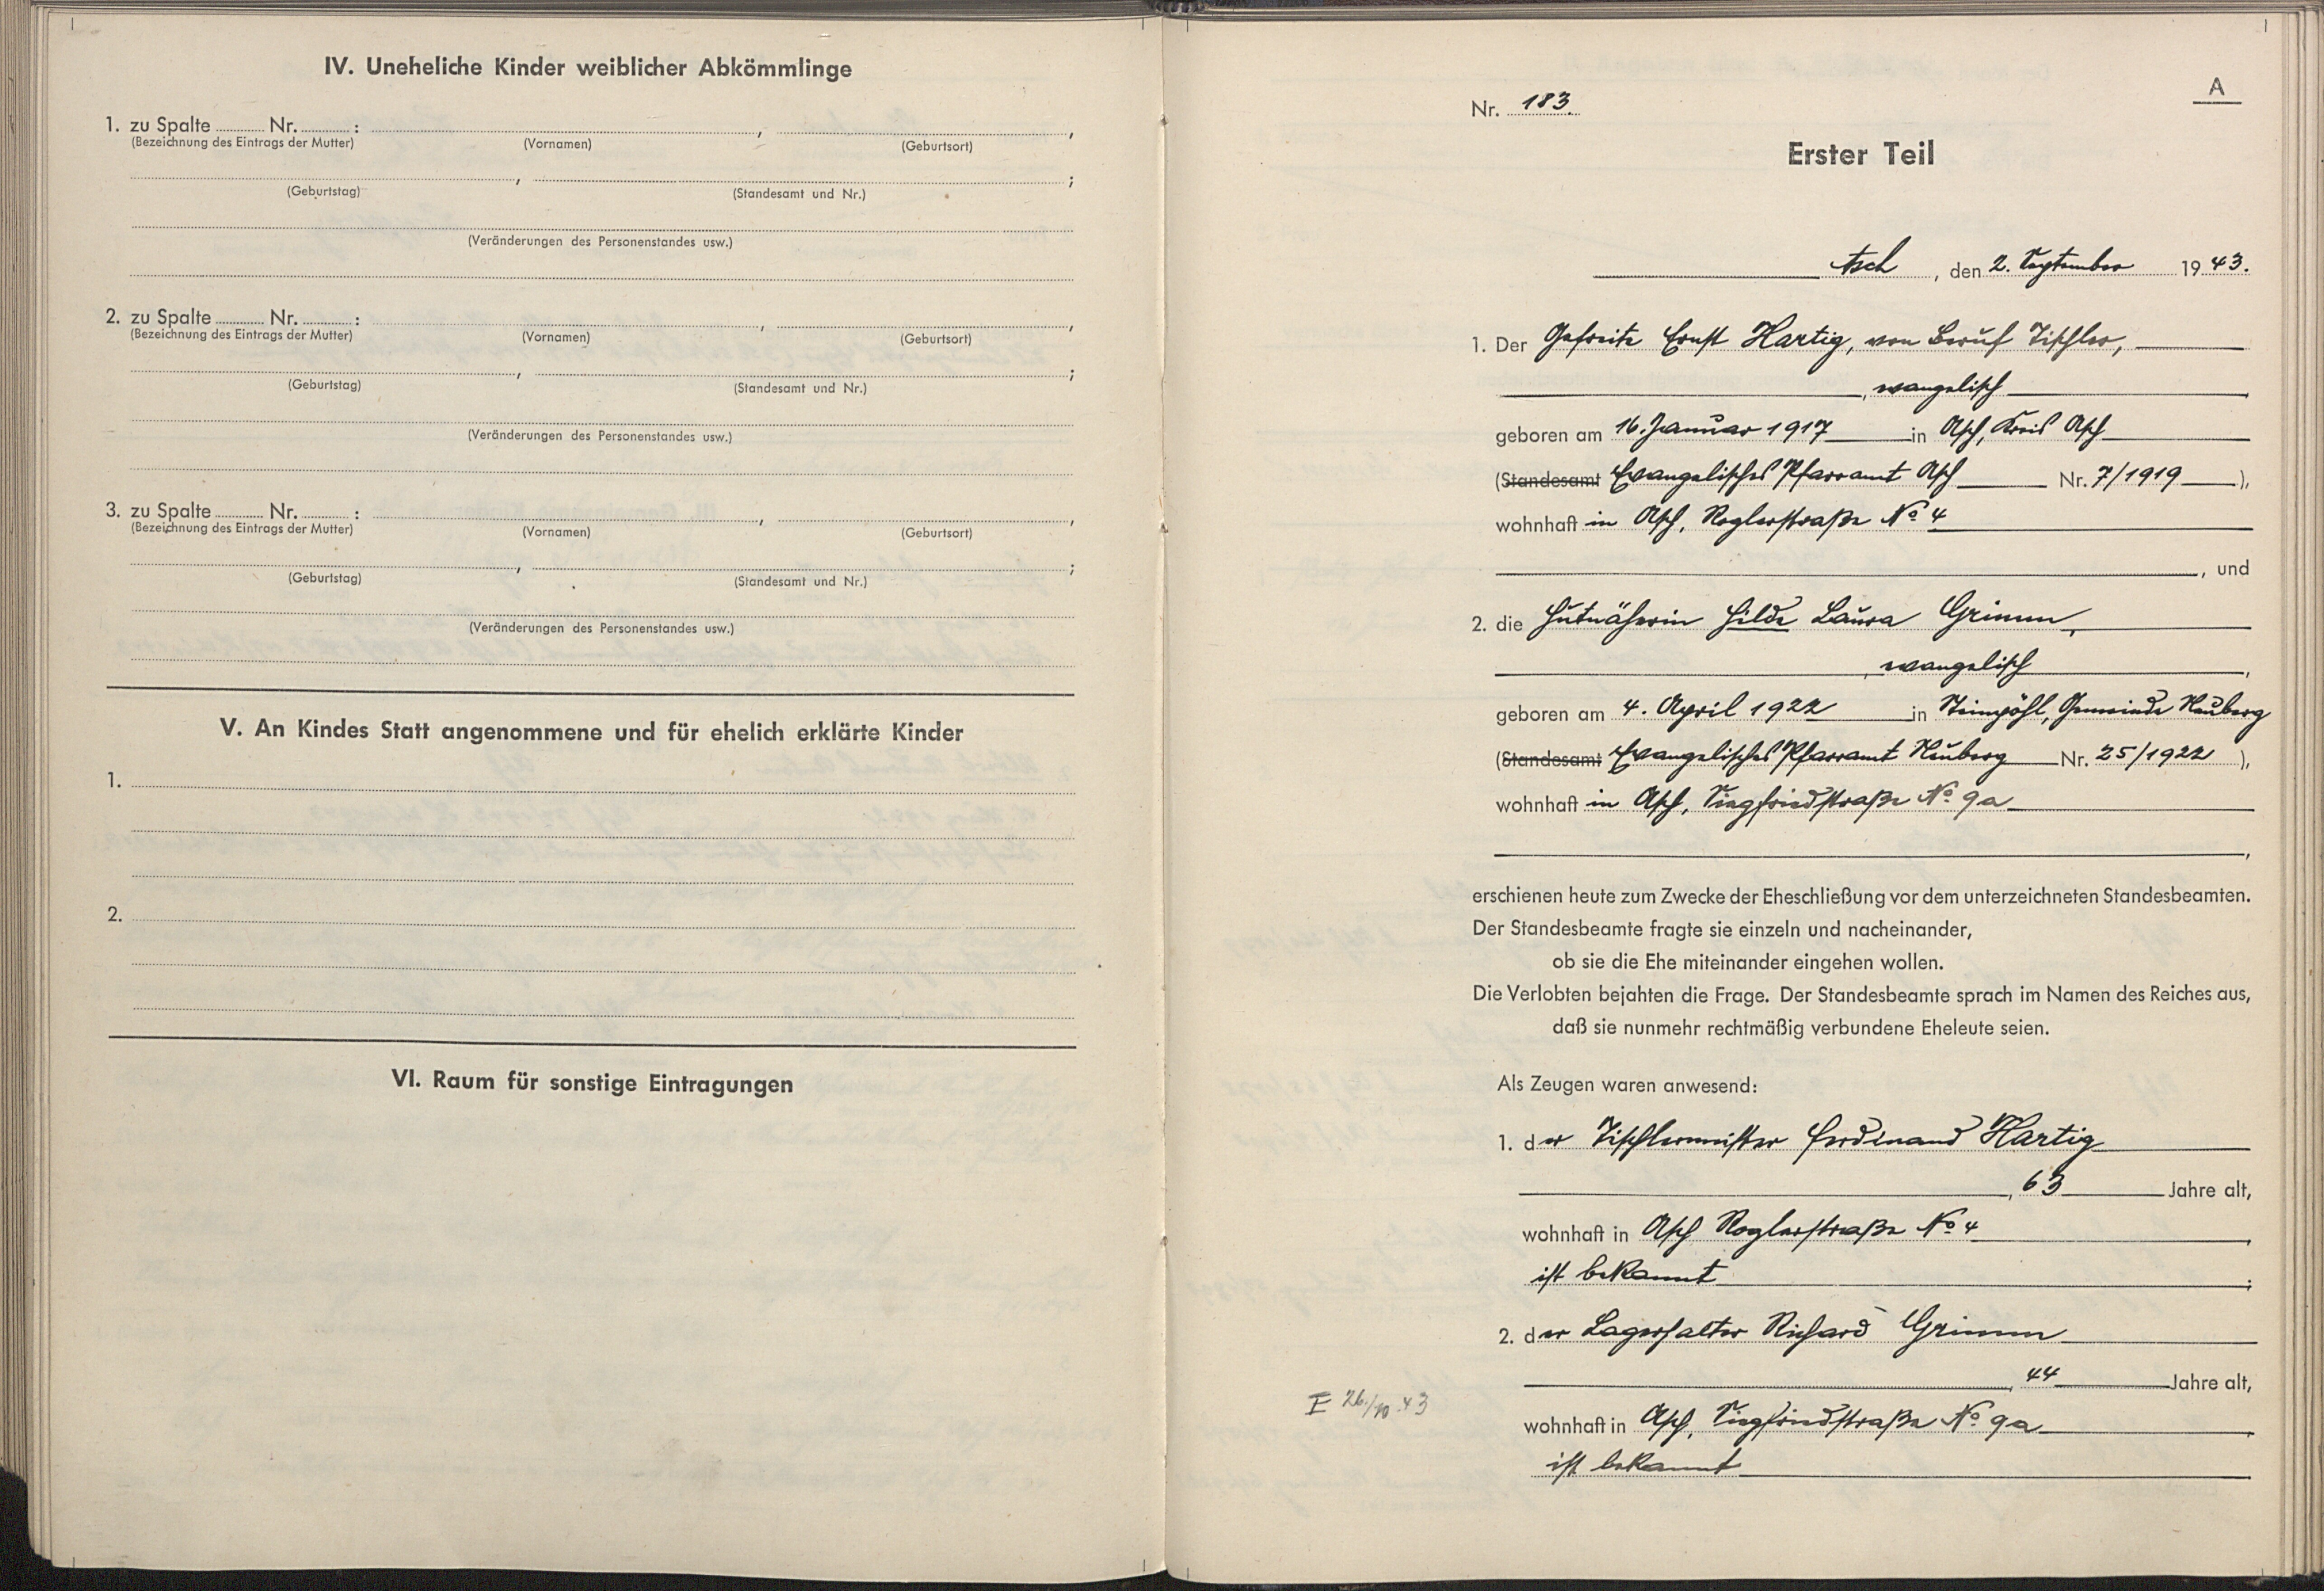 IV. Uneheliche Kinder weiblicher Abkömmlinge
1. zu Spalte Nr. : , ,
(Bezeichnung des Eintrags der Mutter) (Vornamen) (Geburtsort)
, ;
(Geburtstag) (Standesamt und Nr.)
(Veränderungen des Personenstandes usw.)
2. zu Spalte Nr. : , ,
(Bezeichnung des Eintrags der Mutter) (Vornamen) (Geburtsort)
, ;
(Geburtstag) (Standesamt und Nr.)
(Veränderungen des Personenstandes usw.)
3. zu Spalte Nr. : , ,
(Bezeichnung des Eintrags der Mutter) (Vornamen) (Geburtsort)
, ;
(Geburtstag) (Standesamt und Nr.)
(Veränderungen des Personenstandes usw.)
V. An Kindes Statt angenommene und für ehelich erklärte Kinder
1.
2.
VI. Raum für sonstige Eintragungen
A
Nr. 183.
Erster Teil
Asch, den 2. September 1943.
1. Der Gefreite Ernst Hartig, von Beruf Tischler,
, evangelisch,
geboren am 16. Januar 1917 in Asch, Kreis Asch
(Standesamt Evangelisches Pfarramt Asch Nr. 7/1919),
wohnhaft in Asch, Roglerstraße No 4
, und
2. die Hutnäherin Hilde Laura Grimm,
, evangelisch,
geboren am 4. April 1922 in Steinpöhl, Gemeinde Neuberg
(Standesamt Evangelisches Pfarramt Neuberg Nr. 25/1922),
wohnhaft in Asch, Siegfriedstraße No 9a
,
erschienen heute zum Zwecke der Eheschließung vor dem unterzeichneten Standesbeamten.
Der Standesbeamte fragte sie einzeln und nacheinander,
ob sie die Ehe miteinander eingehen wollen.
Die Verlobten bejahten die Frage. Der Standesbeamte sprach im Namen des Reiches aus,
daß sie nunmehr rechtmäßig verbundene Eheleute seien.
Als Zeugen waren anwesend:
1. der Tischlermeister Ferdinand Hartig
, 63 Jahre alt,
wohnhaft in Asch Roglerstraße No 4,
ist bekannt;
2. der Lagerhalter Richard Grimm
, 44 Jahre alt,
I 26./10.43
wohnhaft in Asch, Siegfriedstraße No 9a,
ist bekannt